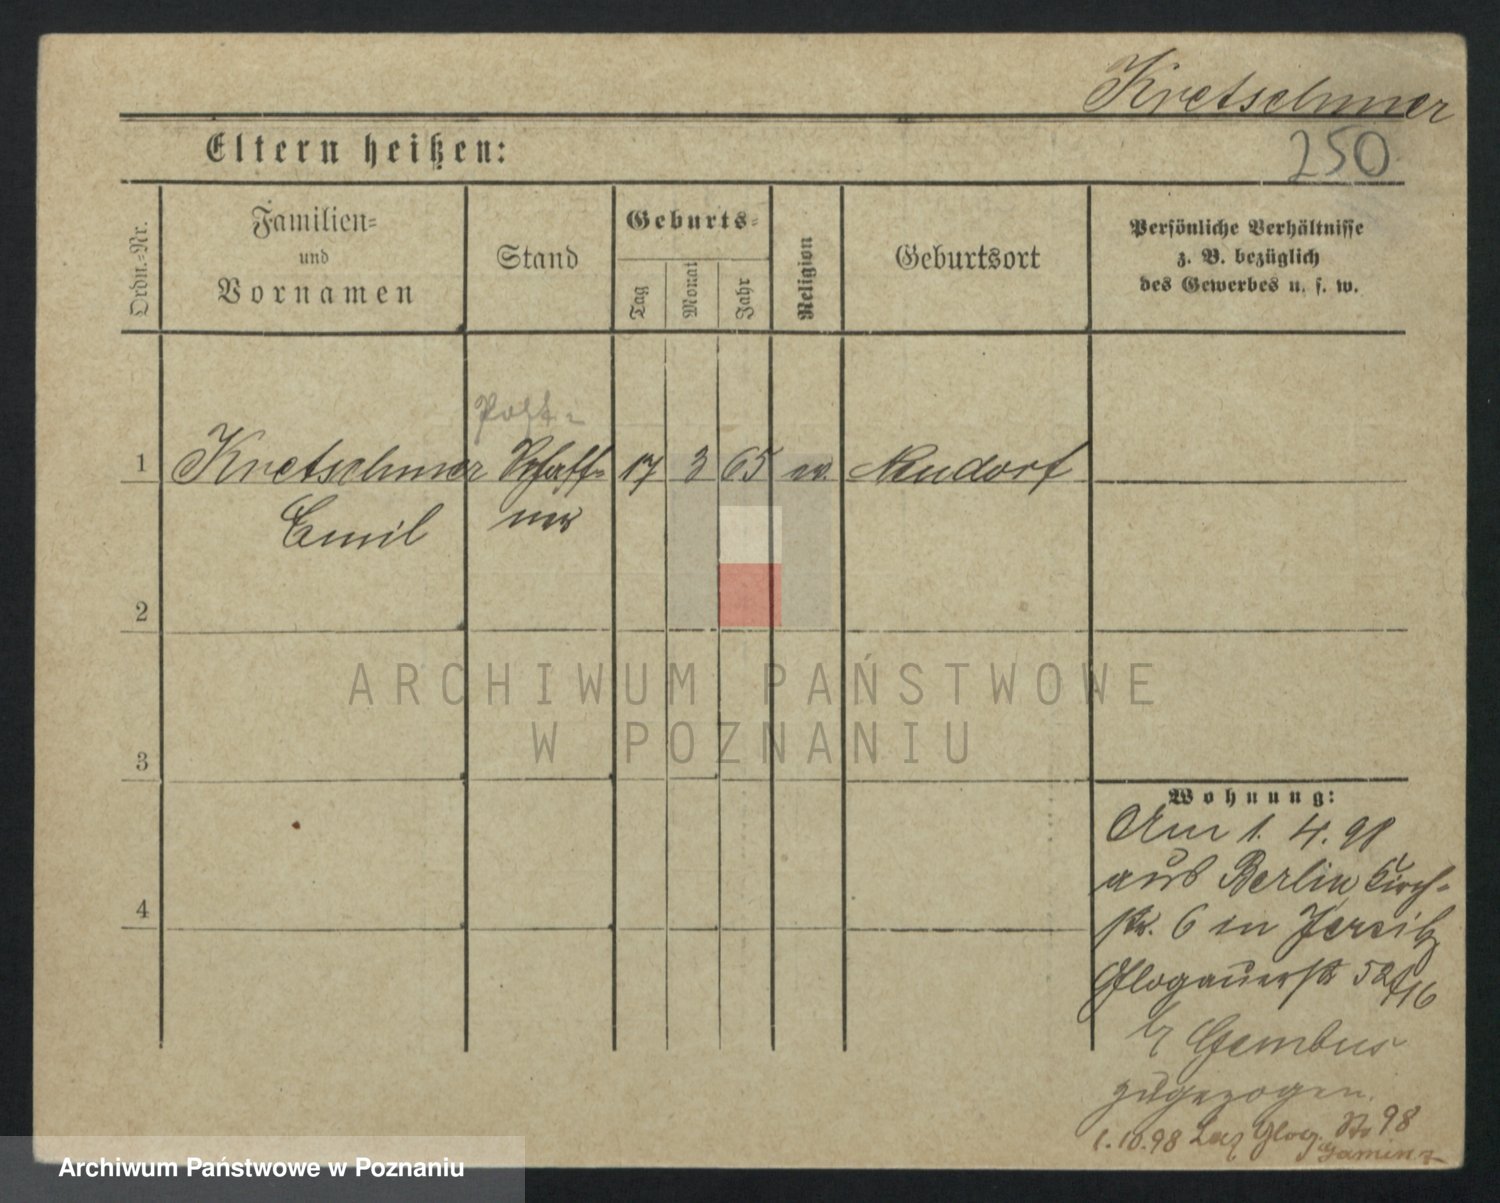 Kretschmer
250
Eltern heißen:
Ordn.-Nr.
Familien-
und
Vornamen
Stand
Geburts-
Tag
Monat
Jahr
Religion
Geburtsort
Persönliche Verhältnisse
z. B. bezüglich
des Gewerbes u. s. w.
Post-
1 Kretschmer Schaff- 17 3 65 ev. Neudorf
Emil ner
2
ARCHIWUM PAŃSTWOWE
W POZNANIU
3
Wohnung:
Am 1. 4. 98
aus Berlin Kirch-
str. 6 in Jersitz
Glogauerstr 52/16
b/ Gembus
zugezogen.
1.10.98 Laz Glog. Str 98
4
Archiwum Państwowe w Poznaniu